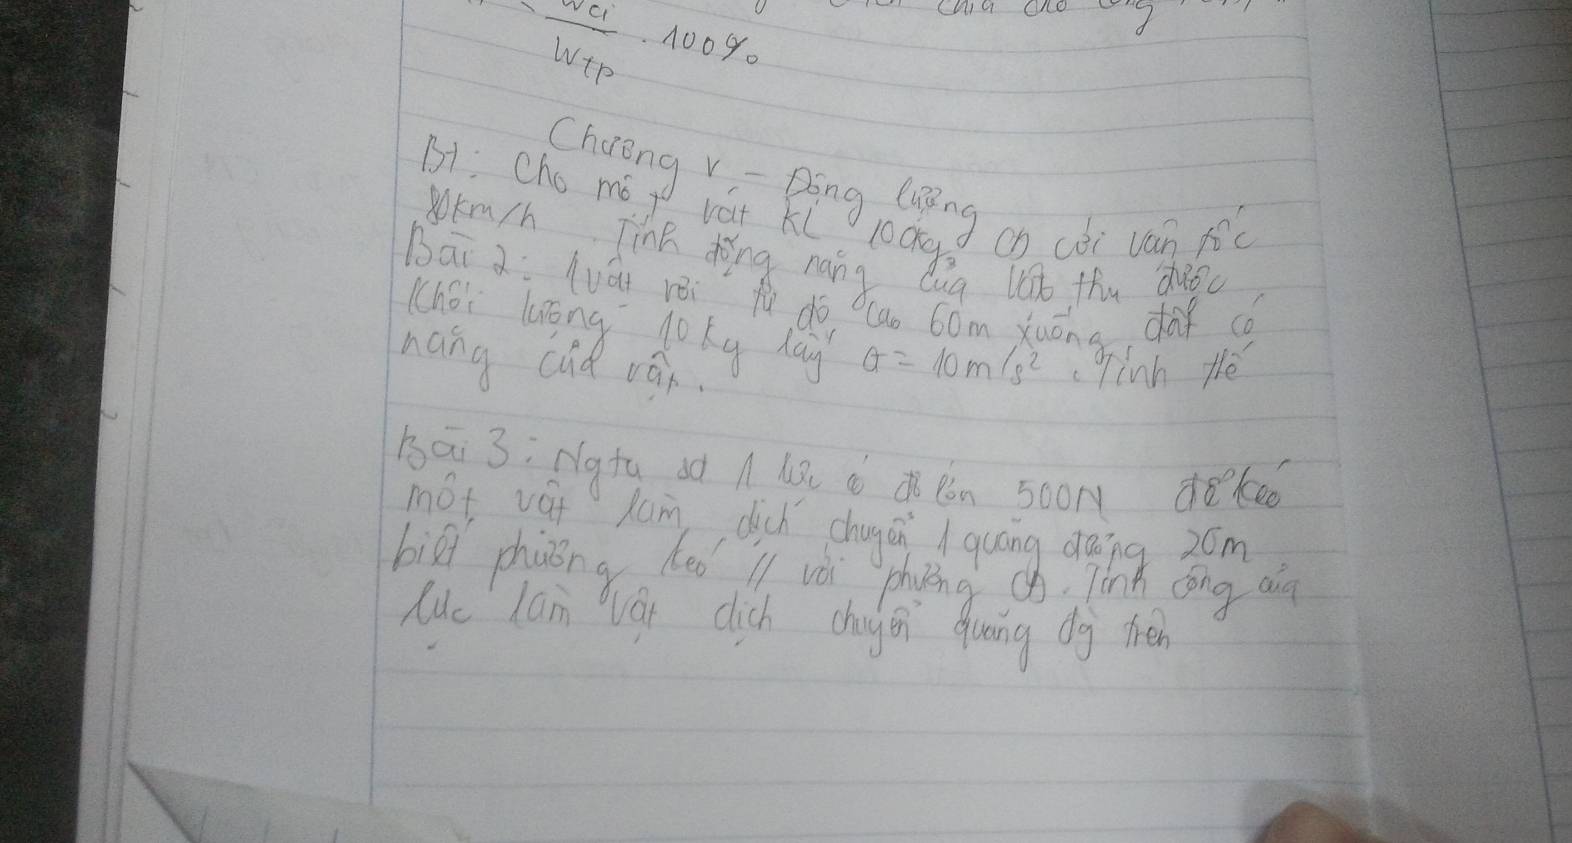 Wci
/ Wtp . 100%
Chương V - Động lượng
B1: Cho một vật KL 100kg, CĐ với vận tốc
80km/h. Tính động năng của vật thu được
Bài 2: 1 vật rơi từ độ cao 60m xuống đất có
khối lượng 10kg lấy a = 10m/s². Tính thế
năng của vật.
Bài 3: Ngta sd 1 lực có độ lớn 500N để kéo
một vật làm dịch chuyển 1 quãng đường 20m
biết phương kéo // với phương CĐ. Tính công của
lực làm vật dịch chuyển quãng đg trên